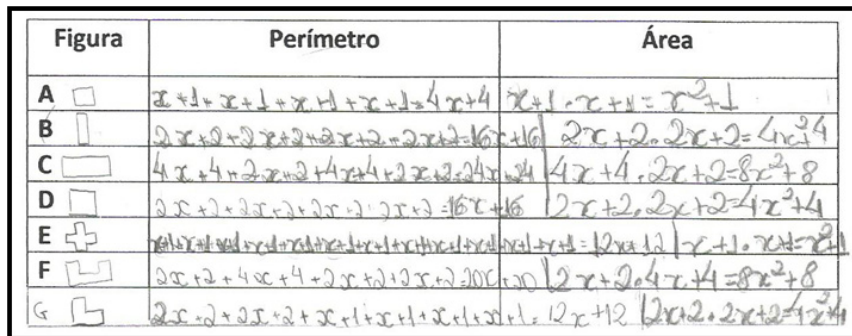 Figura Perímetro Área
A x+1+x+1+x+1+x+1=4x+4 x+1.x+1=x²+1
B 2x+2+2x+2+2x+2+2x+2=16x+16 2x+2.2x+2=4x²4
C 4x+4+2x+2+4x+4+2x+2=24x+24 4x+4.2x+2=8x²+8
D 2x+2+2x+2+2x+2+2x+2=16x+16 2x+2.2x+2=4x²+4
E =12x+12 x+1.x+1=x²+1
F 2x+2+4x+4+2x+2+2x+2=20x+20 2x+2.4x+4=8x²+8
G 2x+2+2x+2+x+1+x+1+x+1+x+1=12x+12 2x+2.2x+2=4x²4